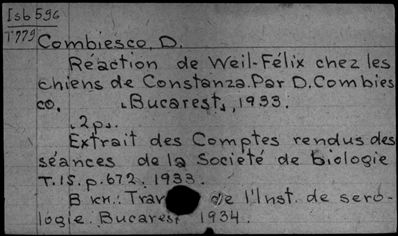 Isb 596
T779
Combiesco, D.
Réaction de Weil-Félix chez les
chiens de Constanza. Par D. Combies
co. Bucarest, 1933.
2p.
Extrait des Comptes rendus des
séances de la Societé de biologie
T.15. p. 672. 1933.
В кн.: de l'Inst. de sero-
logie. Bucarest 1934.